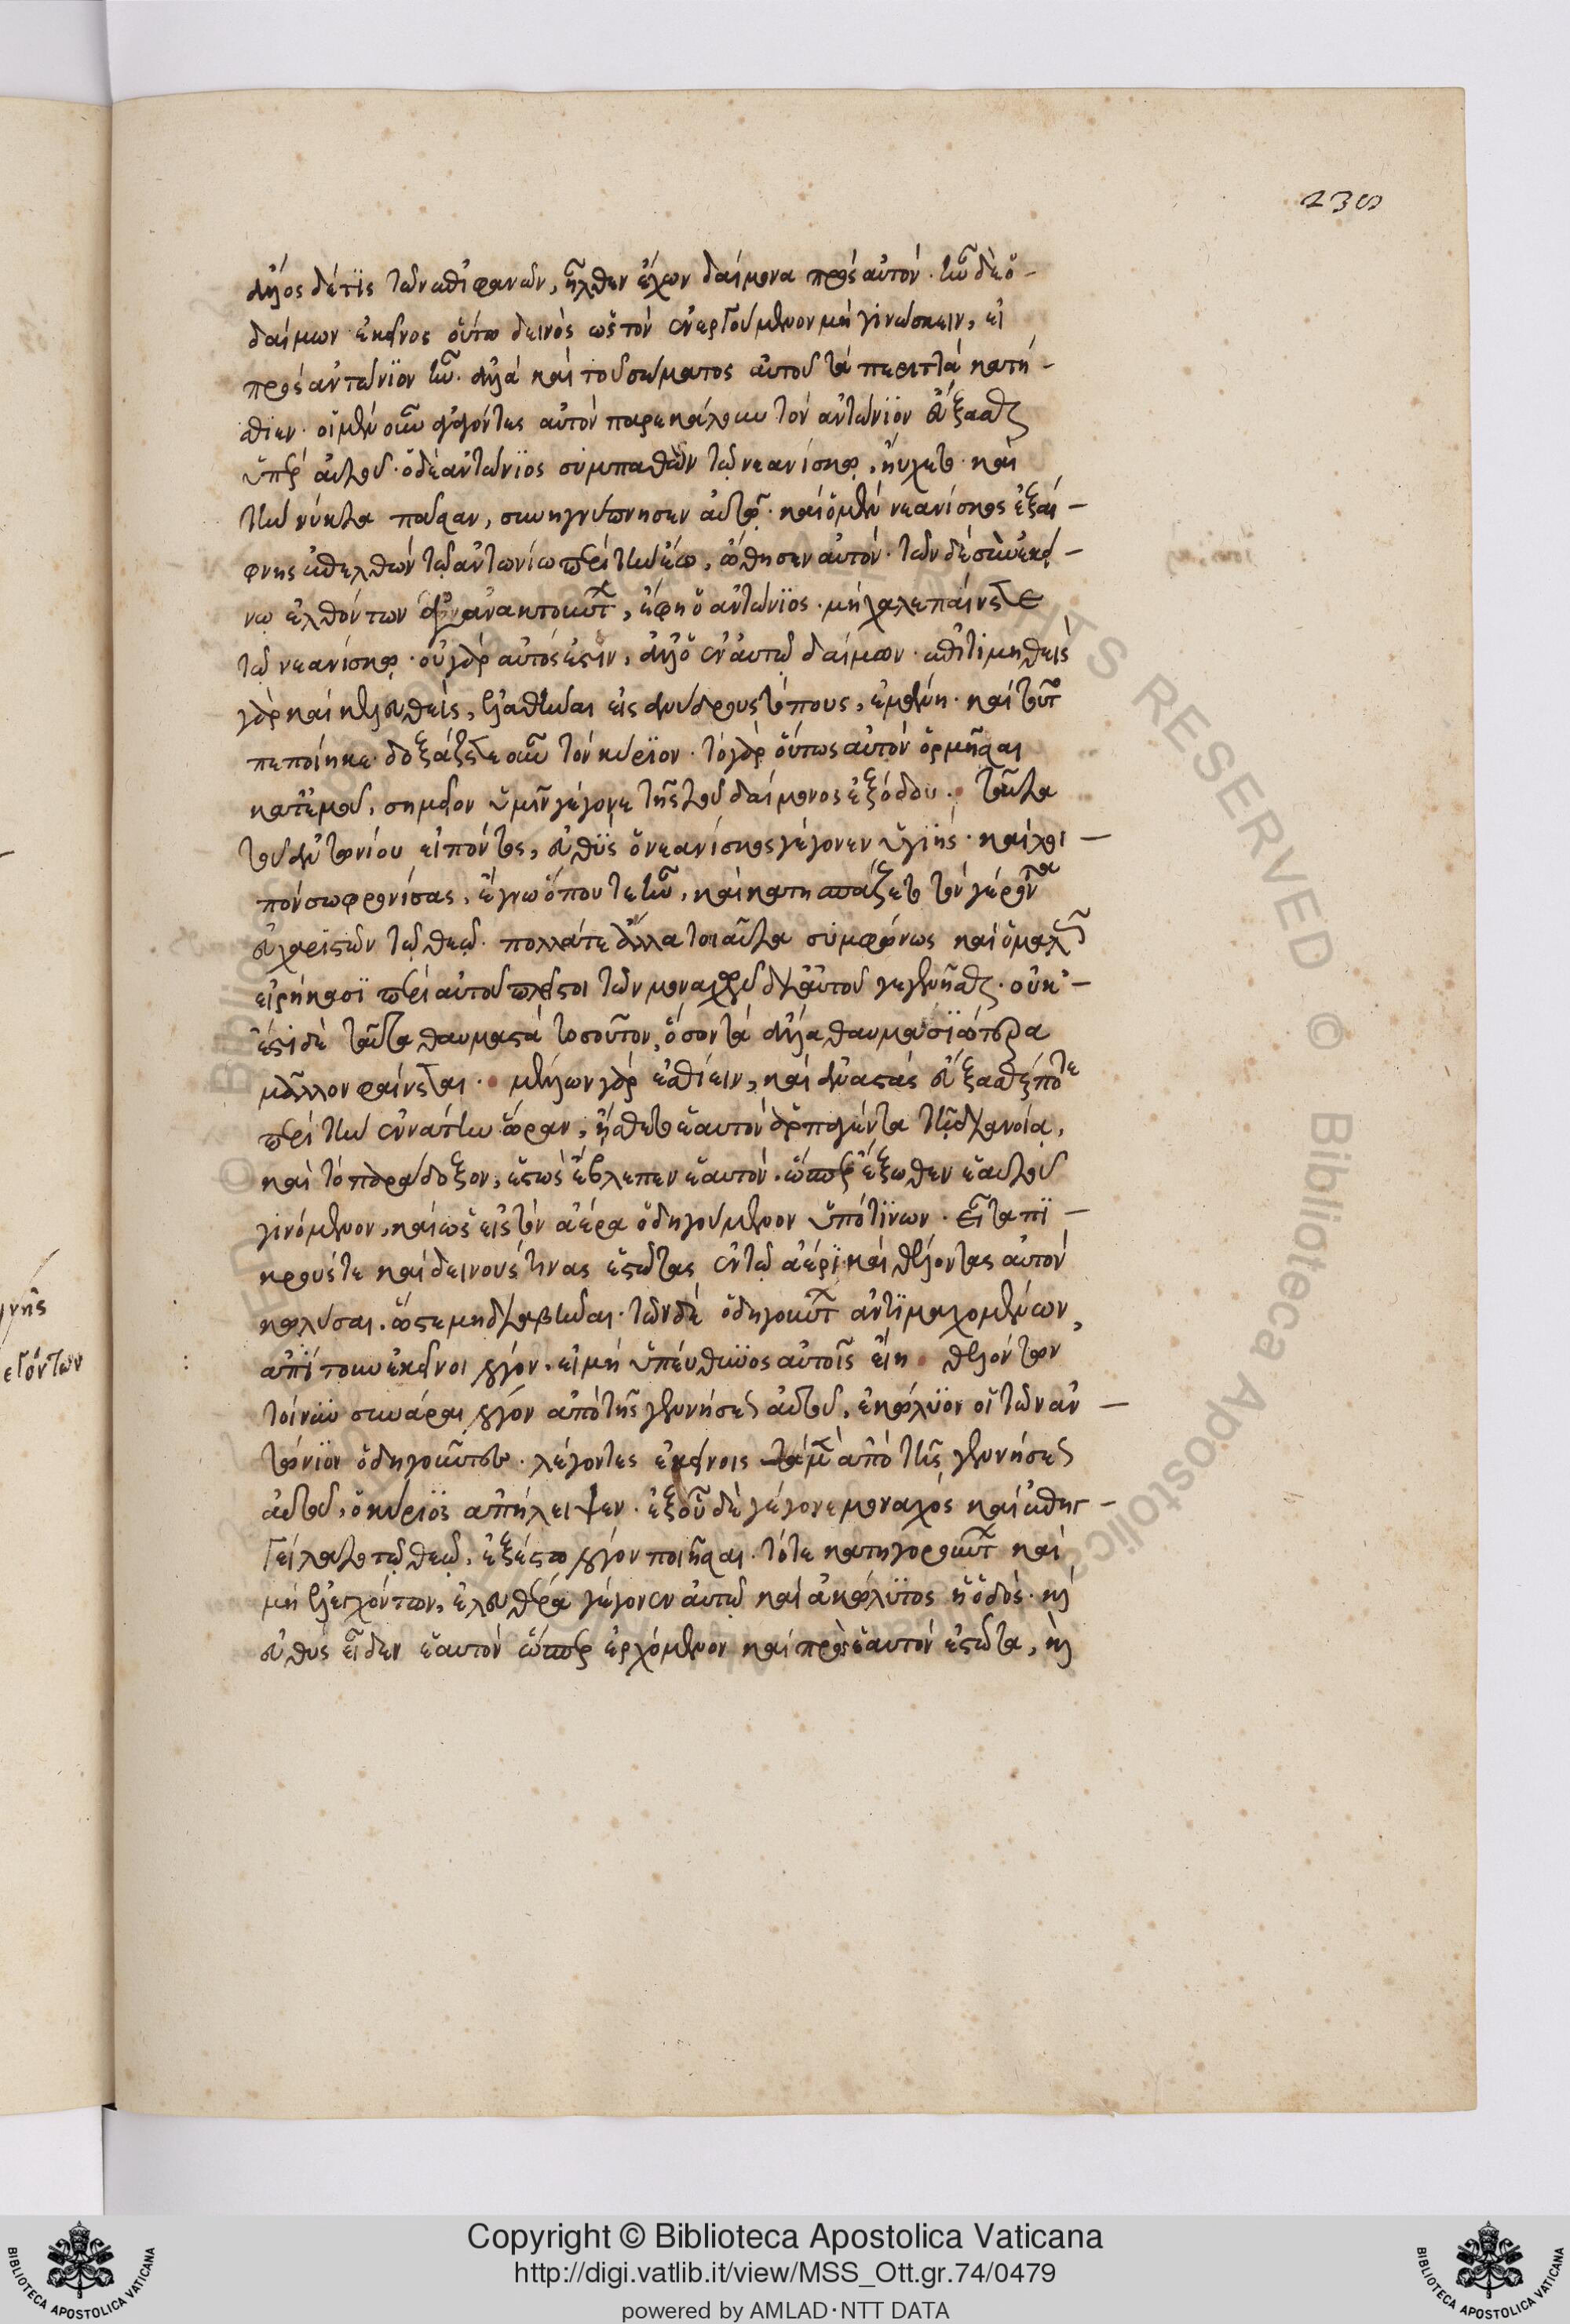 235
ἄλλος δέ τις τῶν ἐπιφανῶν, ἦλθεν ἔχων δαίμονα πρὸς αὐτόν. ἦν δὲ ὁ
δαίμων ἐκεῖνος οὕτω δεινὸς ὡς τὸν ἐνεργούμενον μὴ γινώσκειν, εἰ
πρὸς ἀντώνιον ἦν. ἀλλὰ καὶ τοῦ σώματος αὐτοῦ τὰ περιττὰ κατή-
σθιεν. οἱ μὲν οὖν ἀγαγόντες αὐτὸν παρεκάλουν τὸν ἀντώνιον εὔξασθαι
ὑπὲρ αὐτοῦ. ὁ δὲ ἀντώνιος συμπαθῶν τῷ νεανίσκῳ, ηὔχετο. καὶ
τὴν νύκτα πᾶσαν, συνηγρύπνησεν αὐτῷ. καὶ ὁ μὲν νεανίσκος ἐξαί-
φνης ἐπελθὼν τῷ ἀντωνίῳ περὶ τὴν ἕω, ὤθησεν αὐτόν. τῶν δὲ σὺν ἐκεί-
νῳ ἐλθόντων ἀγανακτούντων, ἔφη ὁ ἀντώνιος. μὴ χαλεπαίνετε
τῷ νεανίσκῳ. οὐ γὰρ αὐτός ἐστιν, ἀλλ' ὁ ἐν αὐτῷ δαίμων. ἐπιτιμηθεὶς
γὰρ καὶ κελευσθεὶς, ἐξελθεῖν εἰς ἀνύδρους τόπους, ἐμάνη. καὶ τοῦτο
πεποίηκε. δοξάζετε οὖν τὸν κύριον. τὸ γὰρ οὕτως αὐτὸν ὁρμῆσαι
κατ' ἐμοῦ, σημεῖον ὑμῖν γέγονε τῆς τοῦ δαίμονος ἐξόδου. ταῦτα
τοῦ ἀντωνίου εἰπόντος, εὐθὺς ὁ νεανίσκος γέγονεν ὑγιής. καὶ λοι-
πὸν σωφρονίσας, ἔγνω ὅπου τε ἦν, καὶ κατησπάζετο τὸν γέροντα
εὐχαριστῶν τῷ θεῷ. πολλά τε ἄλλα τοιαῦτα συμφώνως καὶ ὁμαλῶς
εἰρήκασι περὶ αὐτοῦ πλεῖστοι τῶν μοναχῶν δι' αὐτοῦ γεγενῆσθαι. οὐκ
ἔστι δὲ ταῦτα θαυμαστὰ τοσοῦτον, ὅσον τὰ ἄλλα θαυμασιώτερα
μᾶλλον φαίνεται. μέλλων γὰρ ἐσθίειν, καὶ ἀναστὰς εὔξασθαί ποτε
περὶ τὴν ἐνάτην ὥραν, ᾔσθετο ἑαυτὸν ἁρπαγέντα τῇ διανοίᾳ,
καὶ τὸ παράδοξον, ἑστὼς ἔβλεπεν ἑαυτὸν. ὥσπερ ἔξωθεν ἑαυτοῦ
γινόμενον, καὶ ὡς εἰς τὸν ἀέρα ὁδηγούμενον ὑπό τινων. εἶτα πι-
κρούς τε καὶ δεινούς τινας ἑστῶτας ἐν τῷ ἀέρι καὶ θέλοντας αὐτὸν
κωλῦσαι. ὥστε μὴ διαβῆναι. τῶν δὲ ὁδηγούντων ἀντιμαχομένων,
ἀπῄτουν ἐκεῖνοι λόγον. εἰ μὴ ὑπεύθυνος αὐτοῖς εἴη θελόντων
τοίνυν συνᾶραι λόγον ἀπὸ τῆς γεννήσεως αὐτοῦ, ἐκώλυον οἱ τὸν ἀν-
τώνιον ὁδηγοῦντες. λέγοντες ἐκείνοις τὰ μὲν ἀπὸ τῆς γεννήσεως
αὐτοῦ, ὁ κύριος ἀπήλειψεν. ἐξ οὗ δὲ γέγονε μοναχὸς καὶ ἐπηγ-
γείλατο τῷ θεῷ, ἐξέστω λόγον ποιῆσαι. τότε κατηγορούντων καὶ
μὴ ἐλεγχόντων, ἐλευθέρα γέγονεν αὐτῷ καὶ ἀκώλυτος ἡ ὁδός. καὶ
εὐθὺς εἶδεν ἑαυτὸν ὥσπερ ἐρχόμενον καὶ πρὸς ἑαυτὸν ἑστῶτα, καὶ
Copyright © Biblioteca Apostolica Vaticana
http://digi.vatlib.it/view/MSS_Ott.gr.74/0479
powered by AMLAD·NTT DATA
BIBLIOTECA APOSTOLICA VATICANA
BIBLIOTECA APOSTOLICA VATICANA